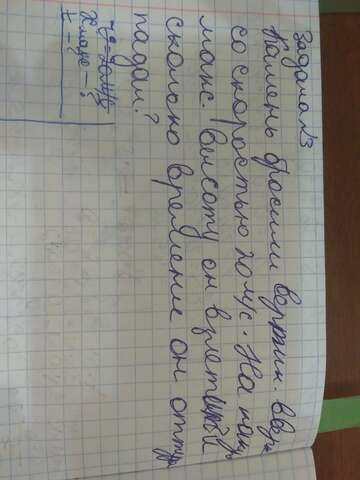 Задача №3
Камень бросили вертик. вверх
со скоростью 20 м/с. На какую
макс. высоту он взлетит и
сколько времени он оттуда
падал?
V0 = 20 м/с
Xмакс - ?
t - ?